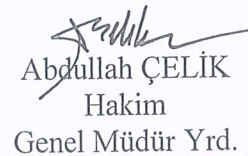 Abdullah ÇELİK
Hakim
Genel Müdür Yrd.